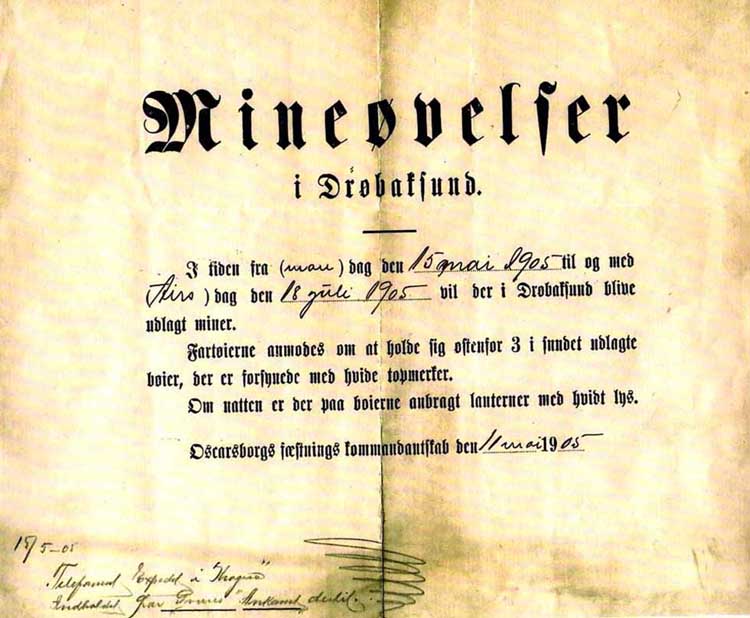 Mineøvelser
i Drøbaksund.
I tiden fra (man) dag den 15 mai 1905 til og med
(tirs) dag den 18 juli 1905 vil der i Drøbaksund blive
udlagt miner.
Fartøierne anmodes om at holde sig østenfor 3 i sundet udlagte
bøier, der er forsynede med hvide topmerker.
Om natten er der paa bøierne anbragt lanterner med hvidt lys.
Oscarsborgs fæstnings kommandantskab den 11 mai 1905
15/5-05
Exped i
Indholdet Ankomst dertil.